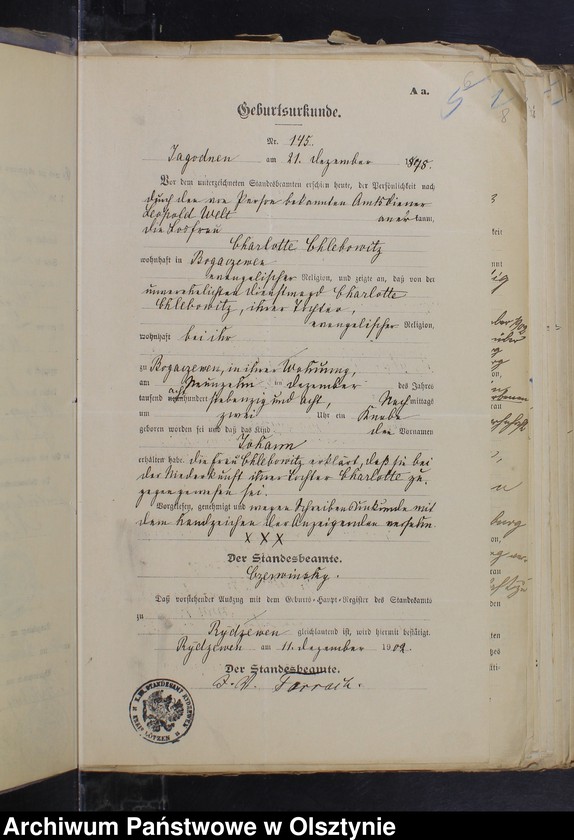 A a.
Geburtsurkunde.
Nr. 145.
Jagodnen am 21. Dezember 1878.
Vor dem unterzeichneten Standesbeamten erschien heute, der Persönlichkeit nach
durch den von Person bekannten Amtsdiener
Leopold Welt anerkannt,
die Losfrau
Charlotte Chlebowitz
wohnhaft in Bogaczewen
evangelischer Religion, und zeigte an, daß von der
unverehelichten Dienstmagd Charlotte
Chlebowitz, ihrer Tochter,
evangelischer Religion,
wohnhaft bei ihr
zu Bogaczewen, in ihrer Wohnung,
am Neunzehn ten Dezember des Jahres
tausend acht hundert siebenzig und acht, Nach mittags
um zwei Uhr ein Knabe
geboren worden sei und daß das Kind den Vornamen
Johann
erhalten habe. die Frau Chlebowitz erklärt, daß sie bei
der Niederkunft ihrer Tochter Charlotte zu-
gegengewesen sei.
Vorgelesen, genehmigt und wegen Schreibensunkunde mit
dem Handzeichen der Anzeigenden versehn.
X X X
Der Standesbeamte.
Czerwinsky.
Daß vorstehender Auszug mit dem Geburts-Haupt-Register des Standesamts
zu
Rydzewen gleichlautend ist, wird hiermit bestätigt.
Rydzewen am 11. Dezember 1902.
Der Standesbeamte.
J. V.
K. PR. STANDESAMT RYDZEWEN
KREIS LÖTZEN
Archiwum Państwowe w Olsztynie